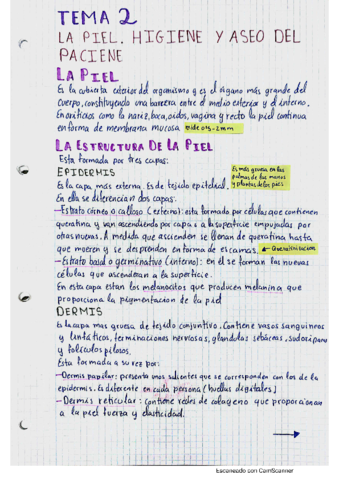 TEMA 2
LA PIEL. HIGIENE Y ASEO DEL
PACIENE
LA PIEL
Es la cubierta exterior del organismo y es el órgano más grande del
cuerpo, constituyendo una barrera entre el medio exterior y el interno.
En orificios como la nariz, boca, oidos, vagina y recto la piel continua
en forma de membrana mucosa mide 0'5-2mm
LA ESTRUCTURA DE LA PIEL
Esta formada por tres capas:
EPIDERMIS
Es más gruesa en las
palmas de las manos
y plantas de los pies
Es la capa más externa. Es de tejido epitelial.
En ella se diferencian dos capas:
-Estrato córneo o calloso (externo): esta formada por células que contienen
queratina y van ascendiendo por capas a la superficie empujadas por
otras nuevas. A medida que ascienden se llenan de queratina hasta
que mueren y se desprenden en forma de escamas. ← Queratinización
-Estrato basal o germinativo (interno): en él se forman las nuevas
células que ascenderan a la superficie.
En esta capa estan los melanocitos que producen melanina que
proporciona la pigmentacion de la piel
DERMIS
Es la capa mas gruesa de tejido conjuntivo. Contiene vasos sanguineos
y linfáticos, terminaciones nerviosas, glandulas sebáceas, sudoriparas
y foliculos pilosos.
Esta formada a su vez por:
-Dermis papilar: presenta unos salientes que se corresponden con los de la
epidermis. Es diferente en cada persona (huellas digitales)
-Dermis reticular: contiene redes de colageno que proporcionan
a la piel fuerza y elasticidad.
Escaneado con CamScanner